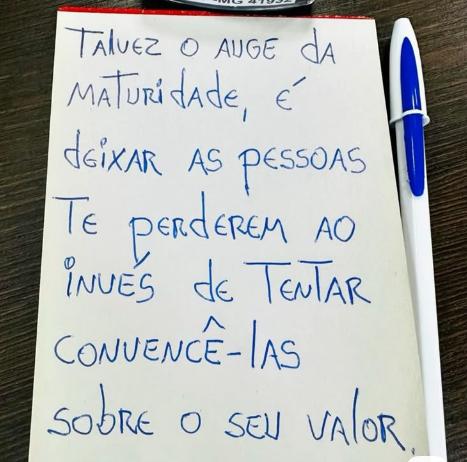 MG 41992
TAlVEZ O AUGE DA
MATURIDADE, É
DEIXAR AS PESSOAS
TE PERDEREM AO
INVÉS DE TENTAR
CONVENCÊ-lAS
SOBRE O SEU VAlOR.